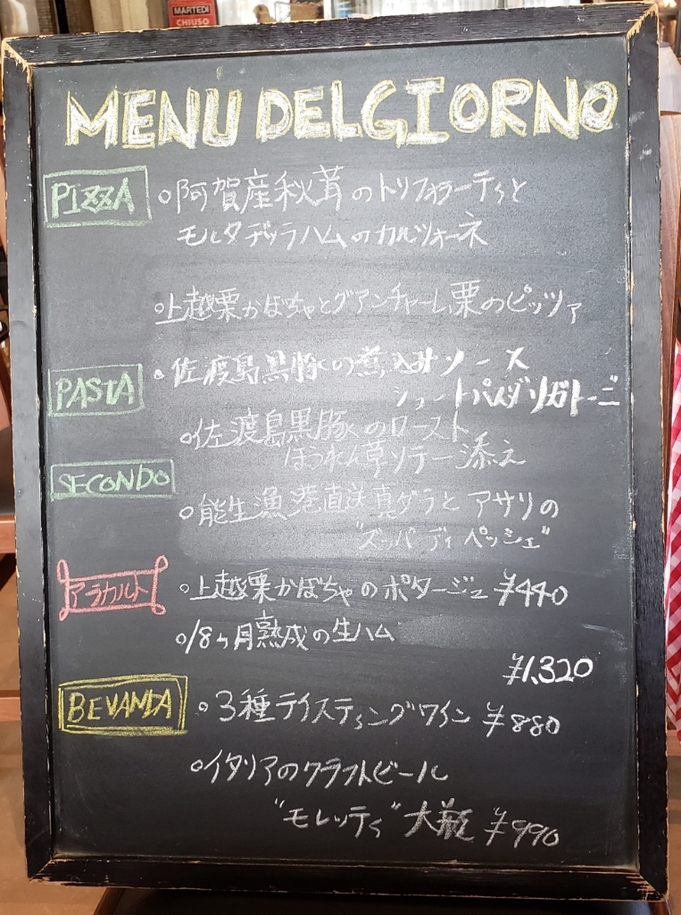 MARTEDI
CHIUSO
MENU DEL GIORNO
PIZZA
○阿賀産秋茸のトリフォラーティと
モルタデッラハムのカルツォーネ
○上越栗かぼちゃとグアンチャーレ、栗のピッツァ
PASTA
○佐渡島黒豚の煮込みソース
ショートパスタ"リガトーニ
○佐渡島黒豚のロースト
ほうれん草ソテー添え
SECONDO
○能生漁港直送真ダラとアサリの
"ズッパ ディ ペッシェ"
アラカルト
○上越栗かぼちゃのポタージュ ¥440
○18ヶ月熟成の生ハム
¥1,320
BEVANDA
○3種テイスティングワイン ¥880
○イタリアのクラフトビール
"モレッティ" 大瓶 ¥990